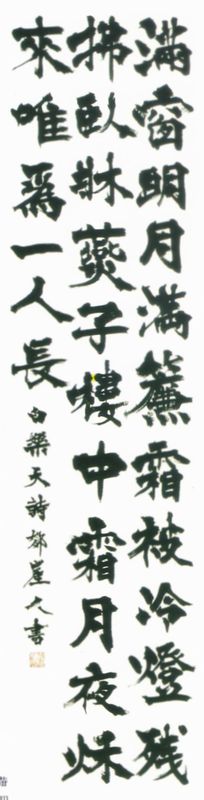 滿窗明月滿簾霜被冷燈残
拂臥牀燕子樓中霜月夜秋
來唯爲一人長
白樂天詩崖人書